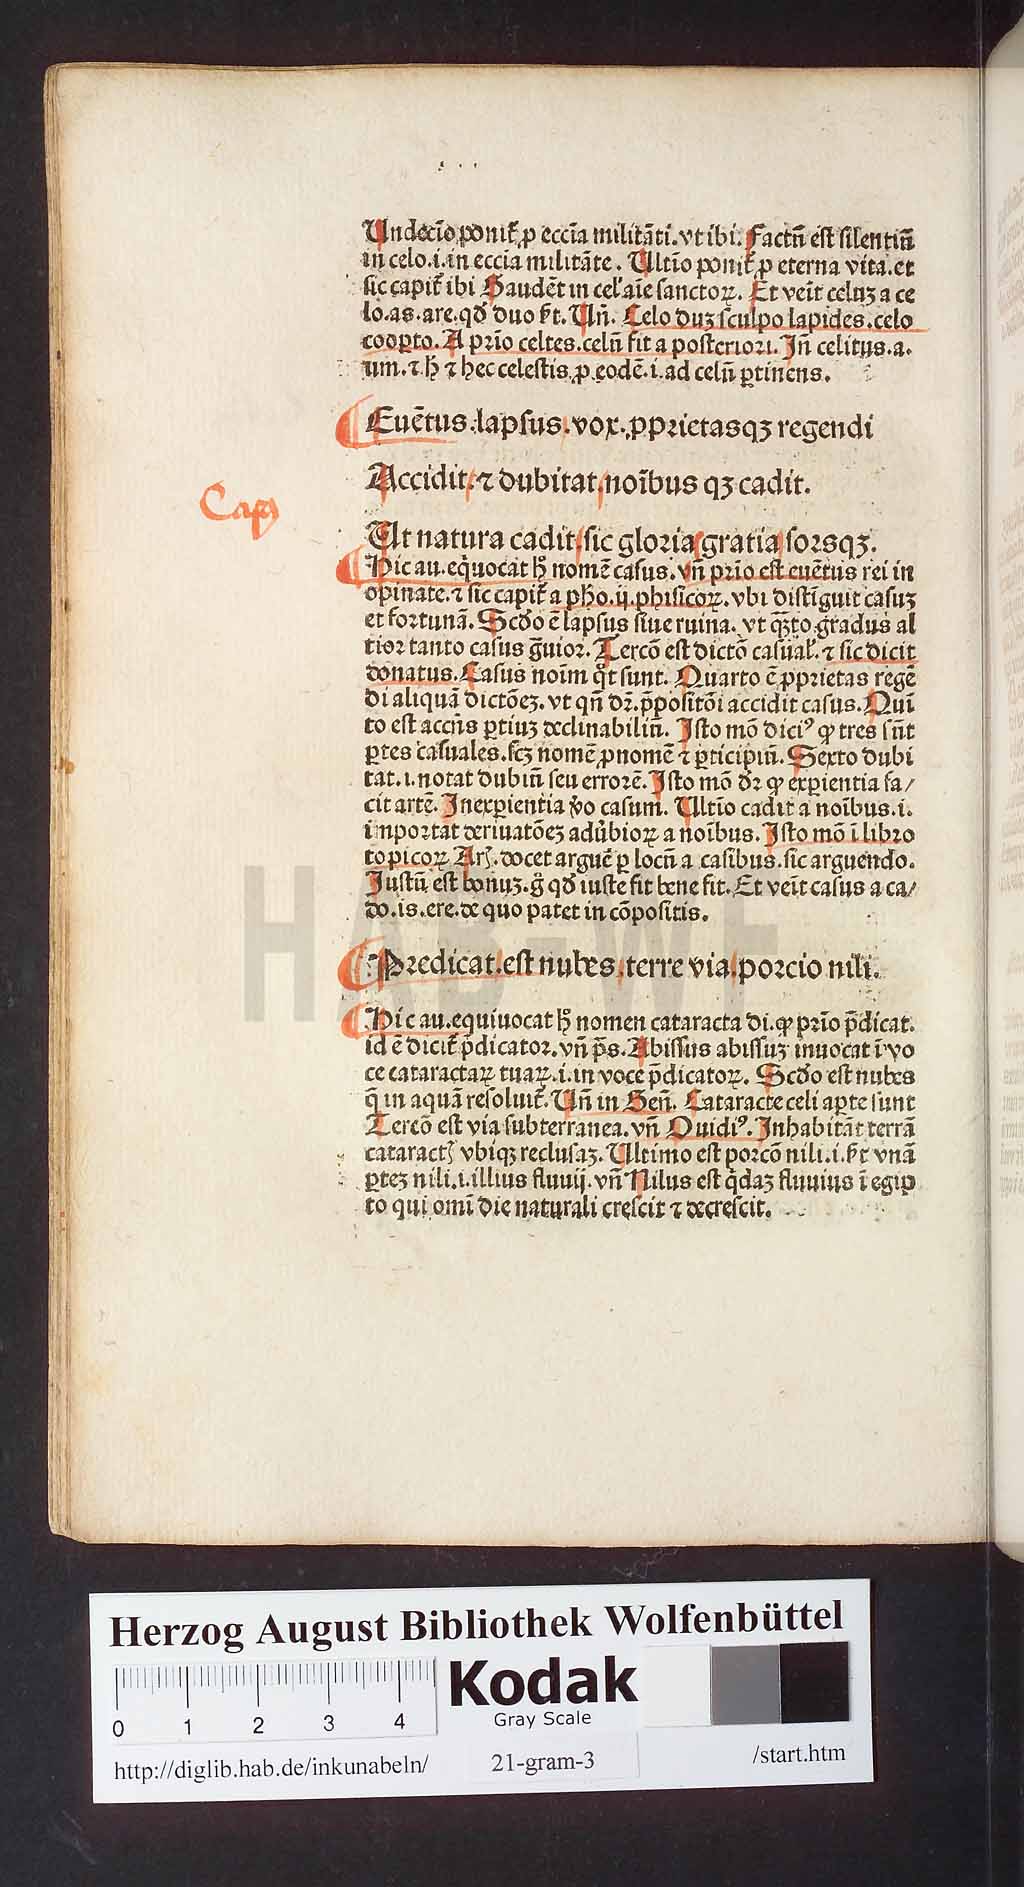 Undecīo ponit᷑ ꝓ eccīa militāti. vt ibi. Factū est silentiū
in celo .i. in eccīa militāte. Ultīo ponit᷑ ꝓ eterna vita. et
sic capit᷑ ibi Gaudēt in cel' aīe sanctoꝝ. Et veīt celuꝫ a ce
lo.as.are. qđ duo st̄. Uñ. Celo duꝫ sculpo lapides. celo
cooꝑto. A prīo celtes. celū fit a posteriori. Iñ celitus.a.
um. ⁊ ħ ⁊ hec celestis ꝓ eodē .i. ad celū ꝑtinens.
Euētus. lapsus. vox. ꝓprietasqꝫ regendi
Accidit. ⁊ dubitat, noībus qꝫ cadit.
Casꝰ
Ut natura cadit, sic gloria gratia sorsqꝫ.
Hic au. equocat ħ nomē casus. vñ prīo est euētus rei in
opinate. ⁊ sic capit᷑ a pho. ij. phisicoꝝ. vbi distīguit casuꝫ
et fortunā. Scđo ē lapsus siue ruina. vt qꝫto gradus al
tior tanto casus g̃uior. Tercō est dictō casual'. ⁊ sic dicit
donatus. Casus noīm q̊t sunt. Quarto ē ꝓprietas regē
di aliquā dictōeꝫ. vt qñ dr̄. p̄positōi accidit casus. Quī
to est accñs ꝑtiuꝫ declinabiliū. Isto mō diciꝰ ꝙ tres sūt
ꝑtes casuales. scꝫ nomē ꝓnomē ⁊ ꝑticipiū. Sexto dubi
tat .i. notat dubiū seu errorē. Isto mō dr̄ ꝙ exꝑientia fa/
cit artē. Inexꝑientia ṽo casum. Ultīo cadit a noībus .i.
importat deriuatōeꝫ adubioꝝ a noībus. Isto mō ī libro
topicoꝝ Ar. docet arguē ꝑ locū a casibus. sic arguendo.
Iustū est bonuꝫ. g̊ qđ iuste fit bene fit. Et veīt casus a ca/
do.is.ere. de quo patet in cōpositis.
Predicat. est nubes, terre via, porcio nili.
Hic au. equiuocat ħ nomen cataracta di. ꝙ prīo p̄dicat.
id ē dicit᷑ p̄dicator. vñ p̄s. Abissus abissuꝫ inuocat ī vo
ce cataractaꝝ tuaꝝ .i. in voce p̄dicatoꝝ. Scđo est nubes
q̄ in aquā resoluit᷑. Uñ in Geñ. Cataracte celi apte sunt
Tercō est via subterranea. vñ Ouidiꝰ. Inhabitāt terrā
cataract vbiqꝫ reclusaꝫ. Ultimo est porcō nili .i. st̄ vnā
ꝑteꝫ nili .i. illius fluuij. vñ Nilus est q̄daꝫ fluuius ī egip
to qui omī die naturali crescit ⁊ decrescit.
HAB-WF
Herzog August Bibliothek Wolfenbüttel
0 1 2 3 4
Kodak
Gray Scale
http://diglib.hab.de/inkunabeln/ 21-gram-3 /start.htm